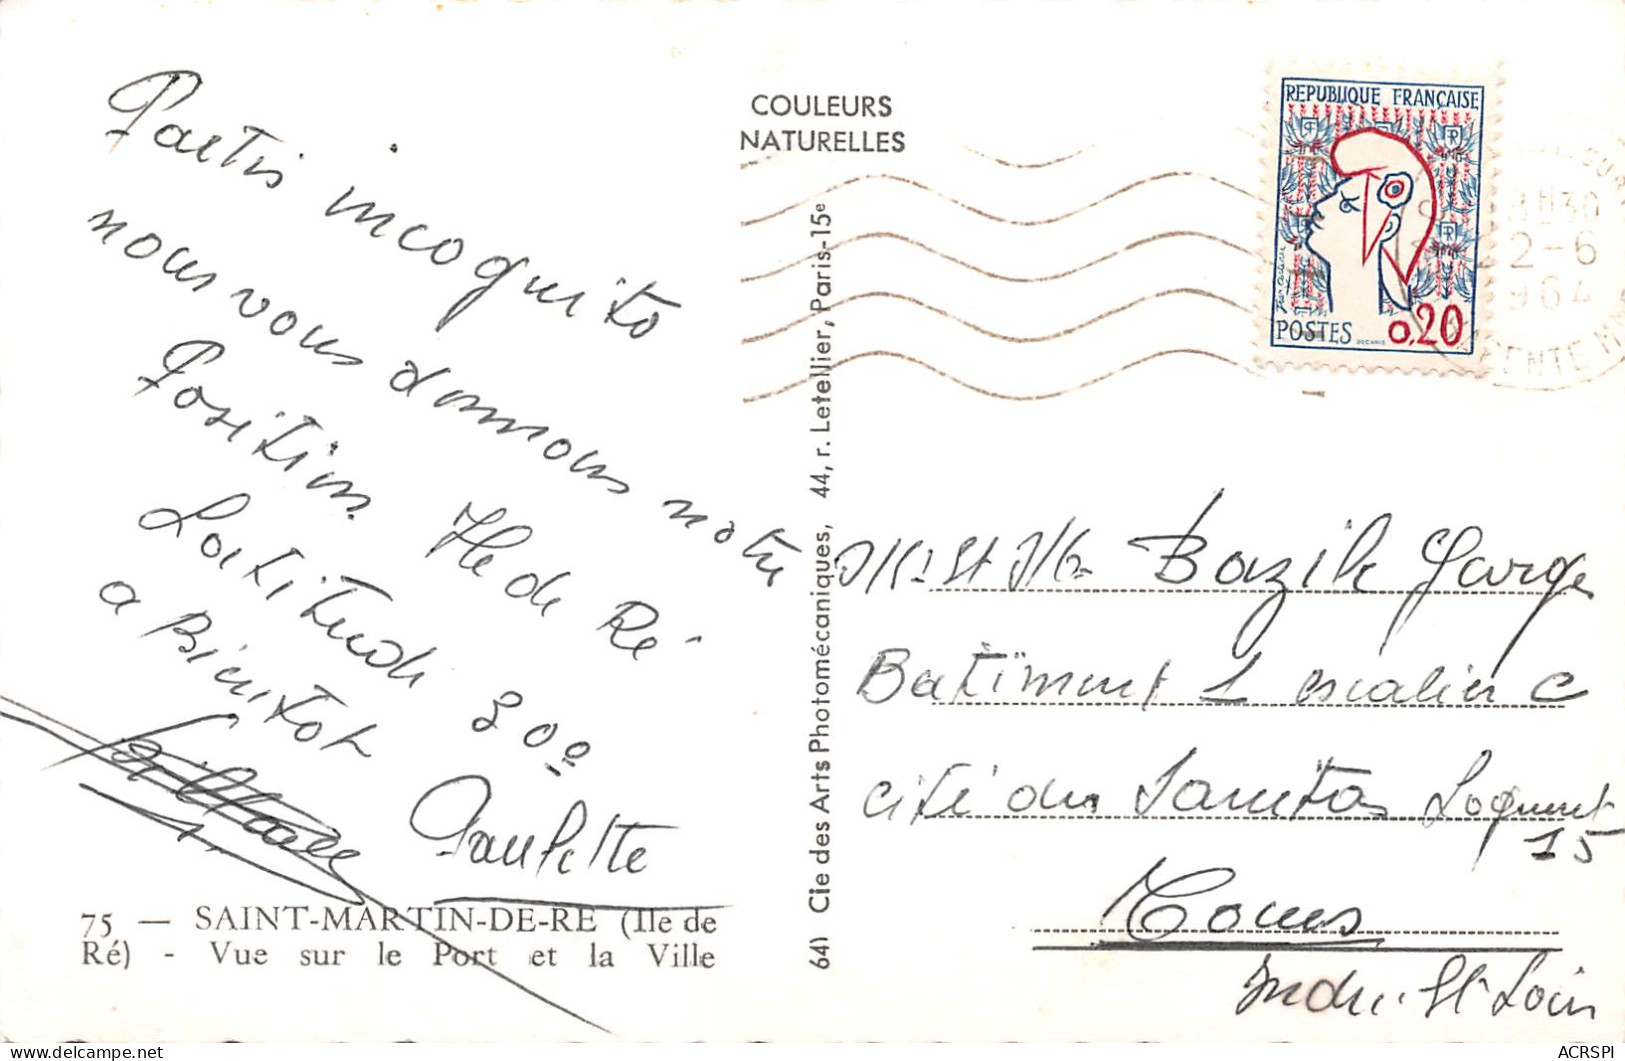 Partis incognito
nous vous donnons notre
Position. Ile de Ré
Latitude 300
a Bientot
Paulette
75 — SAINT-MARTIN-DE-RE (Ile de
Ré) - Vue sur le Port et la Ville
COULEURS
NATURELLES
64) Cie des Arts Photomécaniques, 44, r. Letellier, Paris-15e
REPUBLIQUE FRANÇAISE
POSTES 0,20
H30
2-6
964
Bazile
Batiment 1 escalier C
cité du Sanitas Logement
15
Tours
Indre. et Loire
ACRSPI